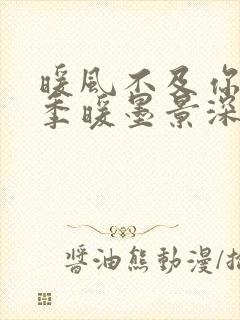 暖風不及你
季暖墨景深
醬油熊動漫/